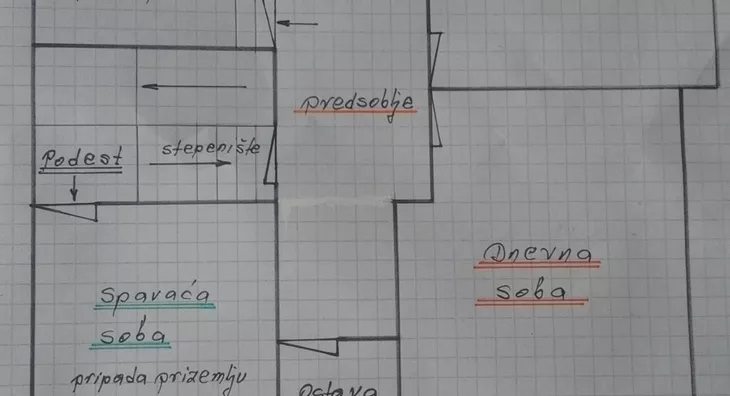 predsoblje
stepenište
Podest
Dnevna
soba
Spavaća
soba
pripada prizemlju
Ostava